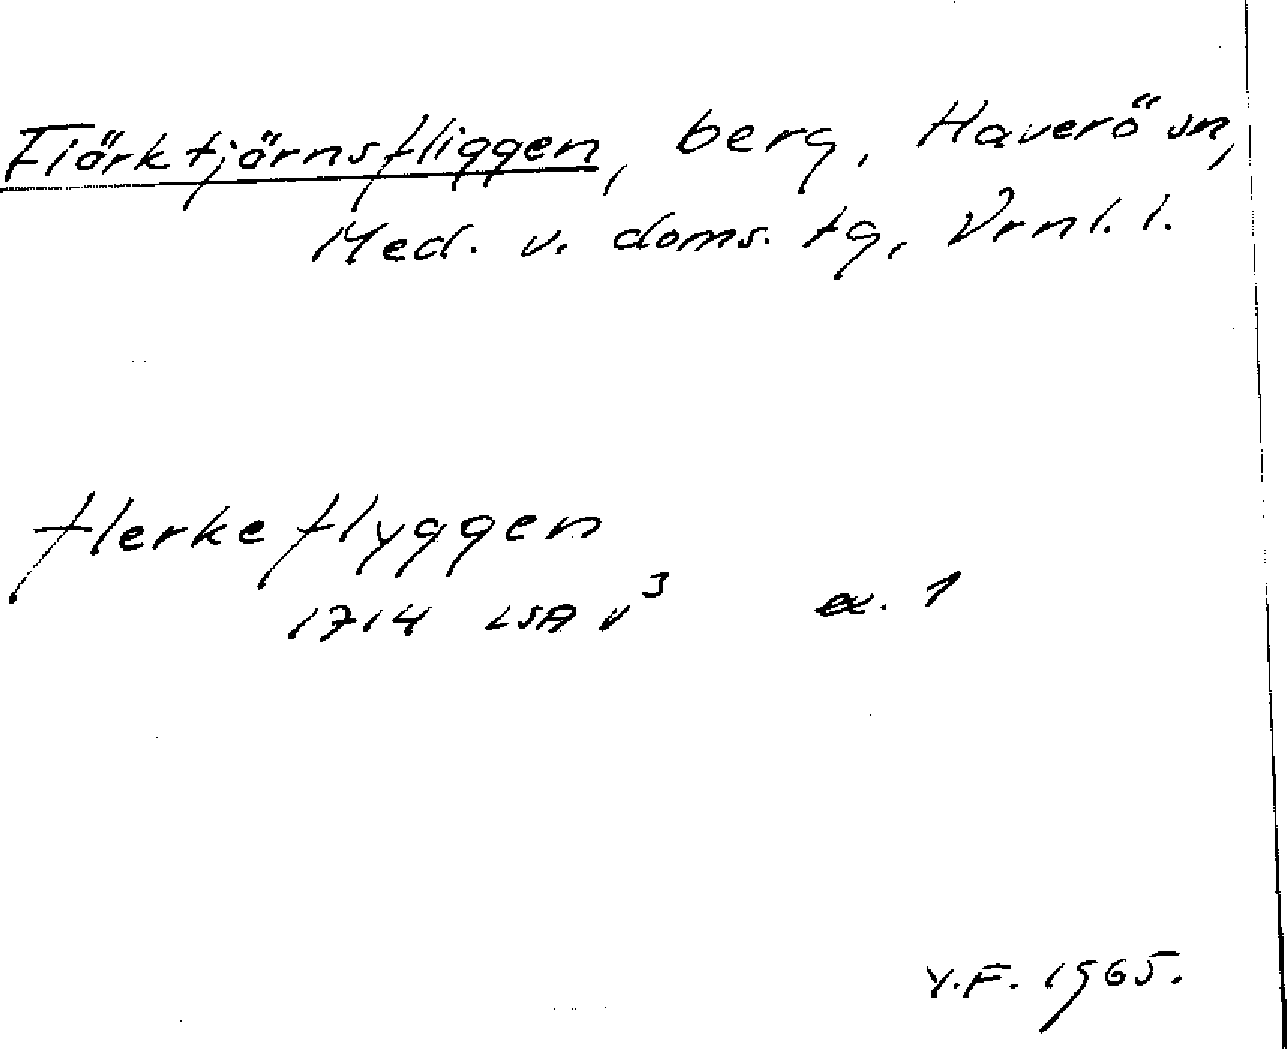 Flörktjärnsfliggen, berg, Haverö sn,
Med. v. doms. tg, Vrnl. l.
flerkeflyggen
1714 LSA v³ a. 1
Y.F. 1965.